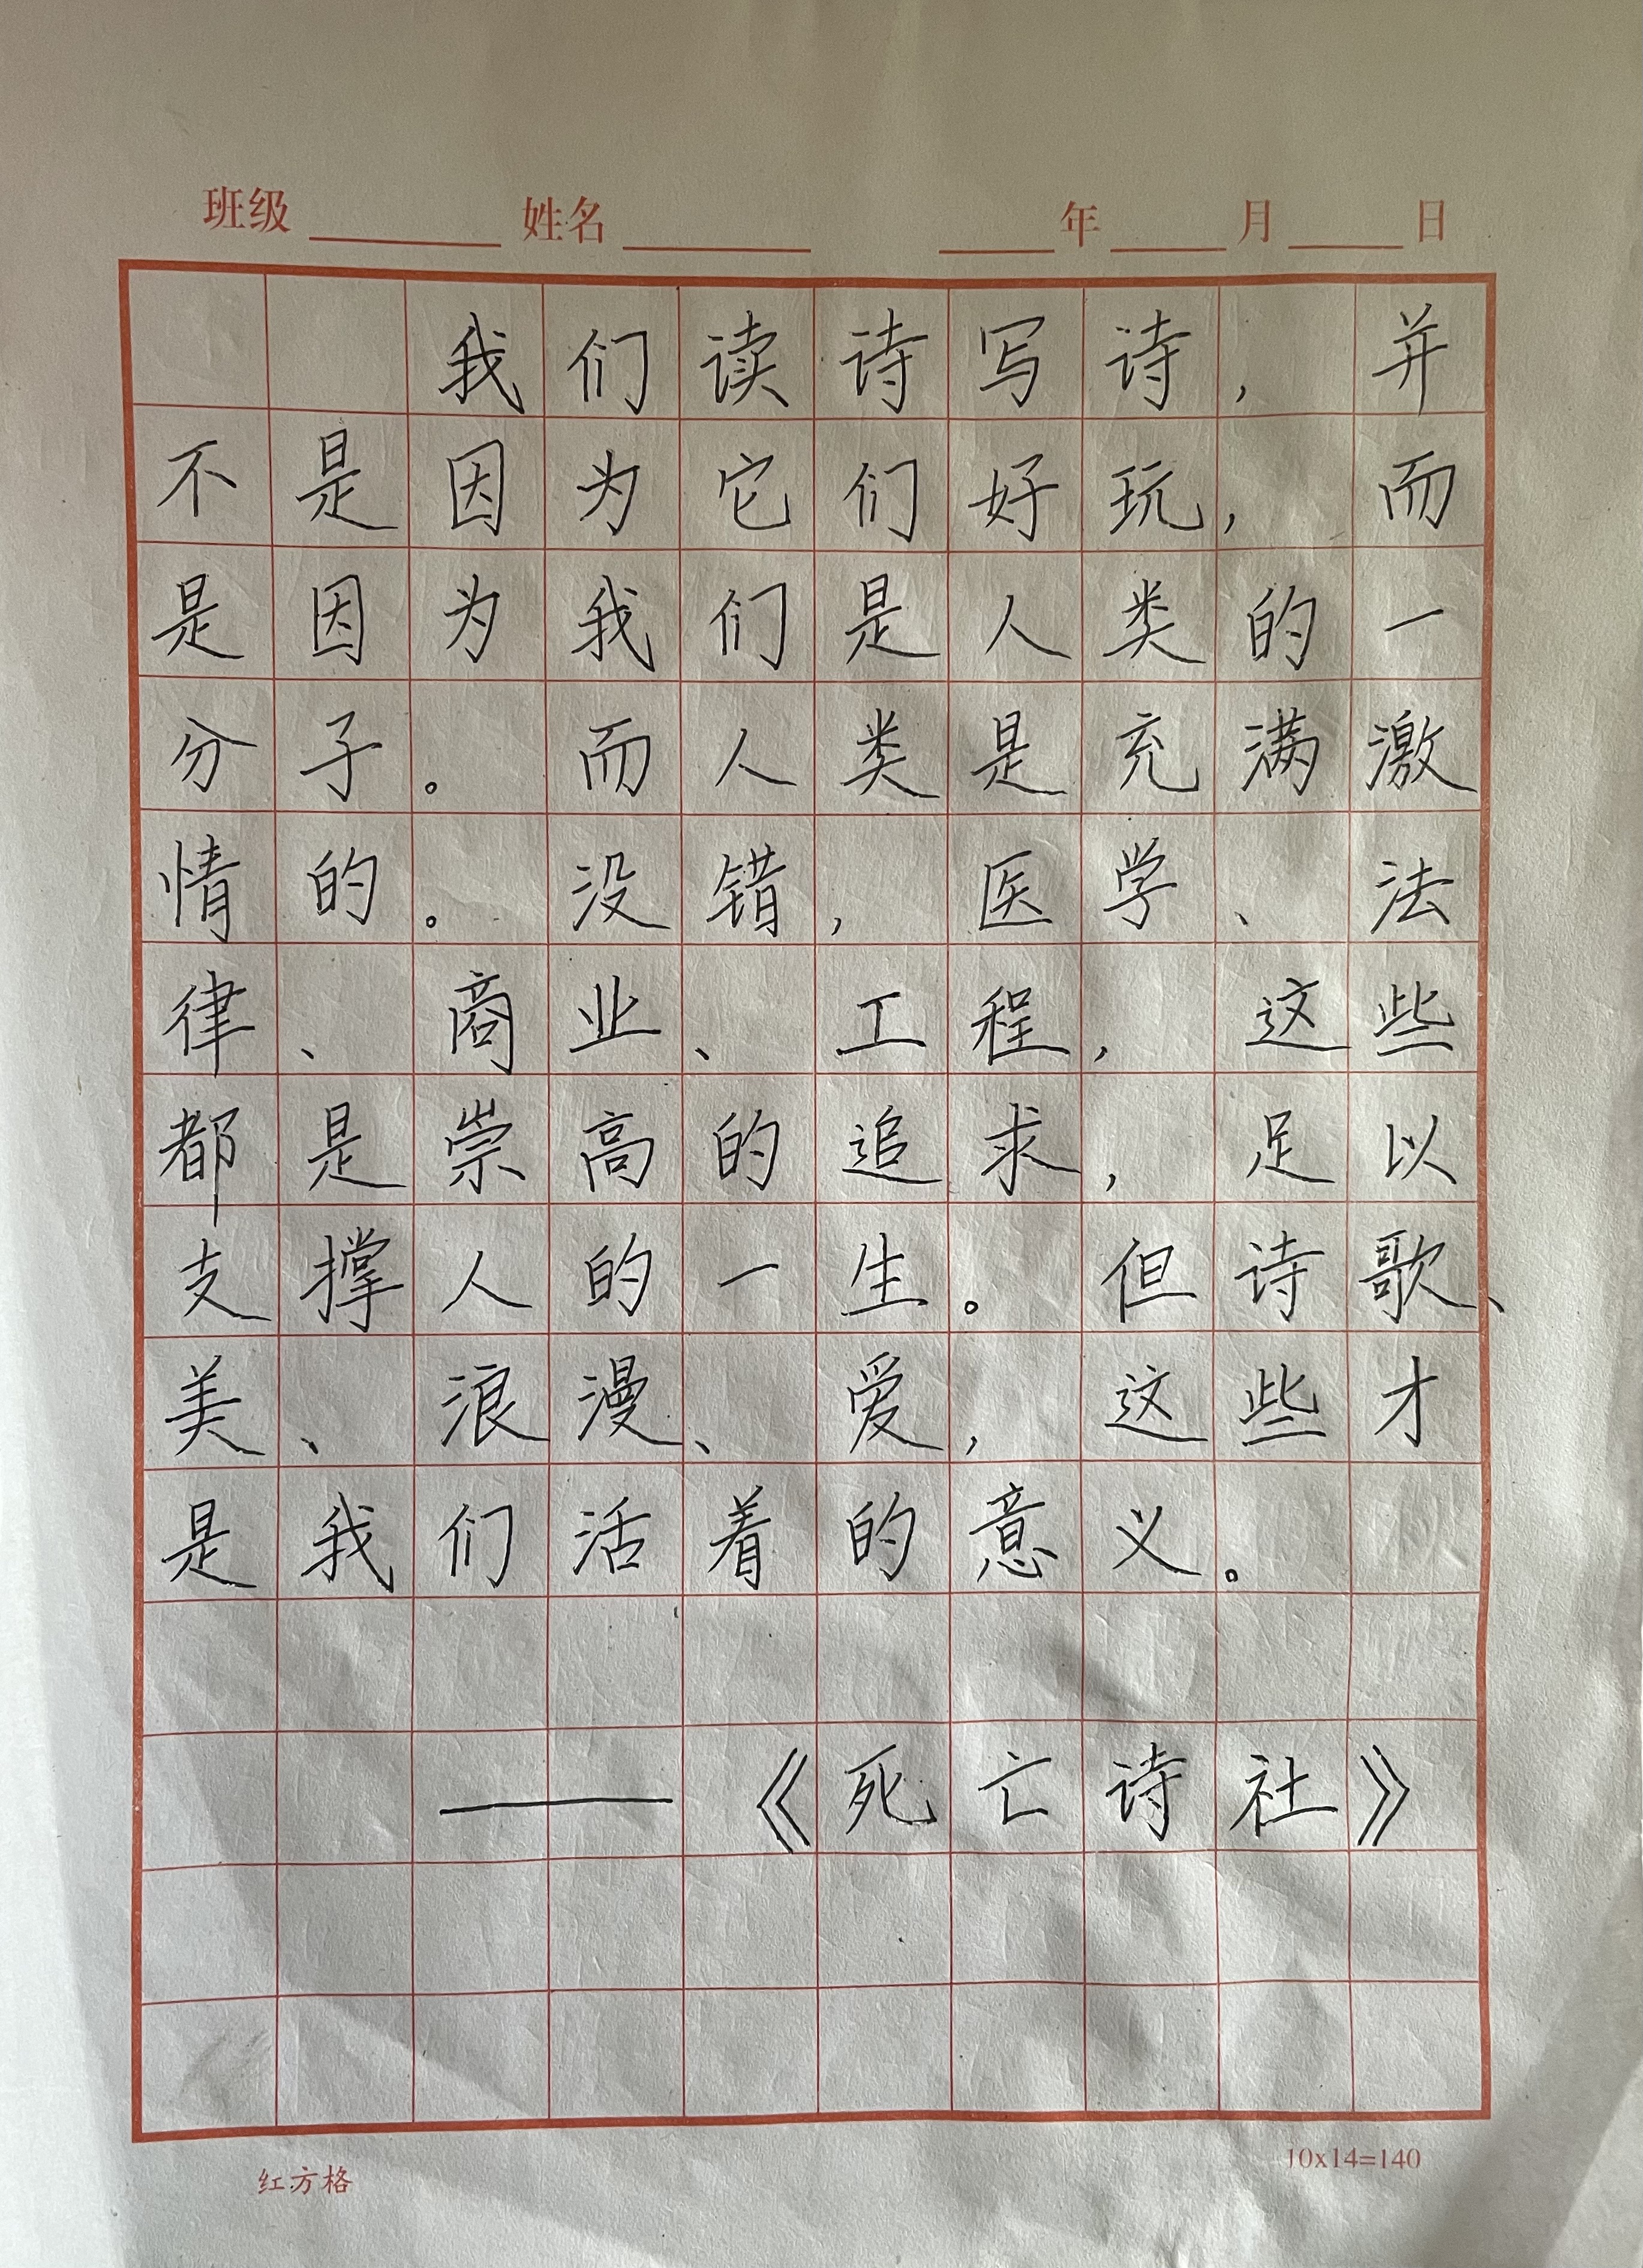 班级 姓名 年 月 日
我们读诗写诗，并
不是因为它们好玩，而
是因为我们是人类的一
分子。而人类是充满激
情的。没错，医学、法
律、商业、工程，这些
都是崇高的追求，足以
支撑人的一生。但诗歌、
美、浪漫、爱，这些才
是我们活着的意义。
——《死亡诗社》
红方格 10x14=140